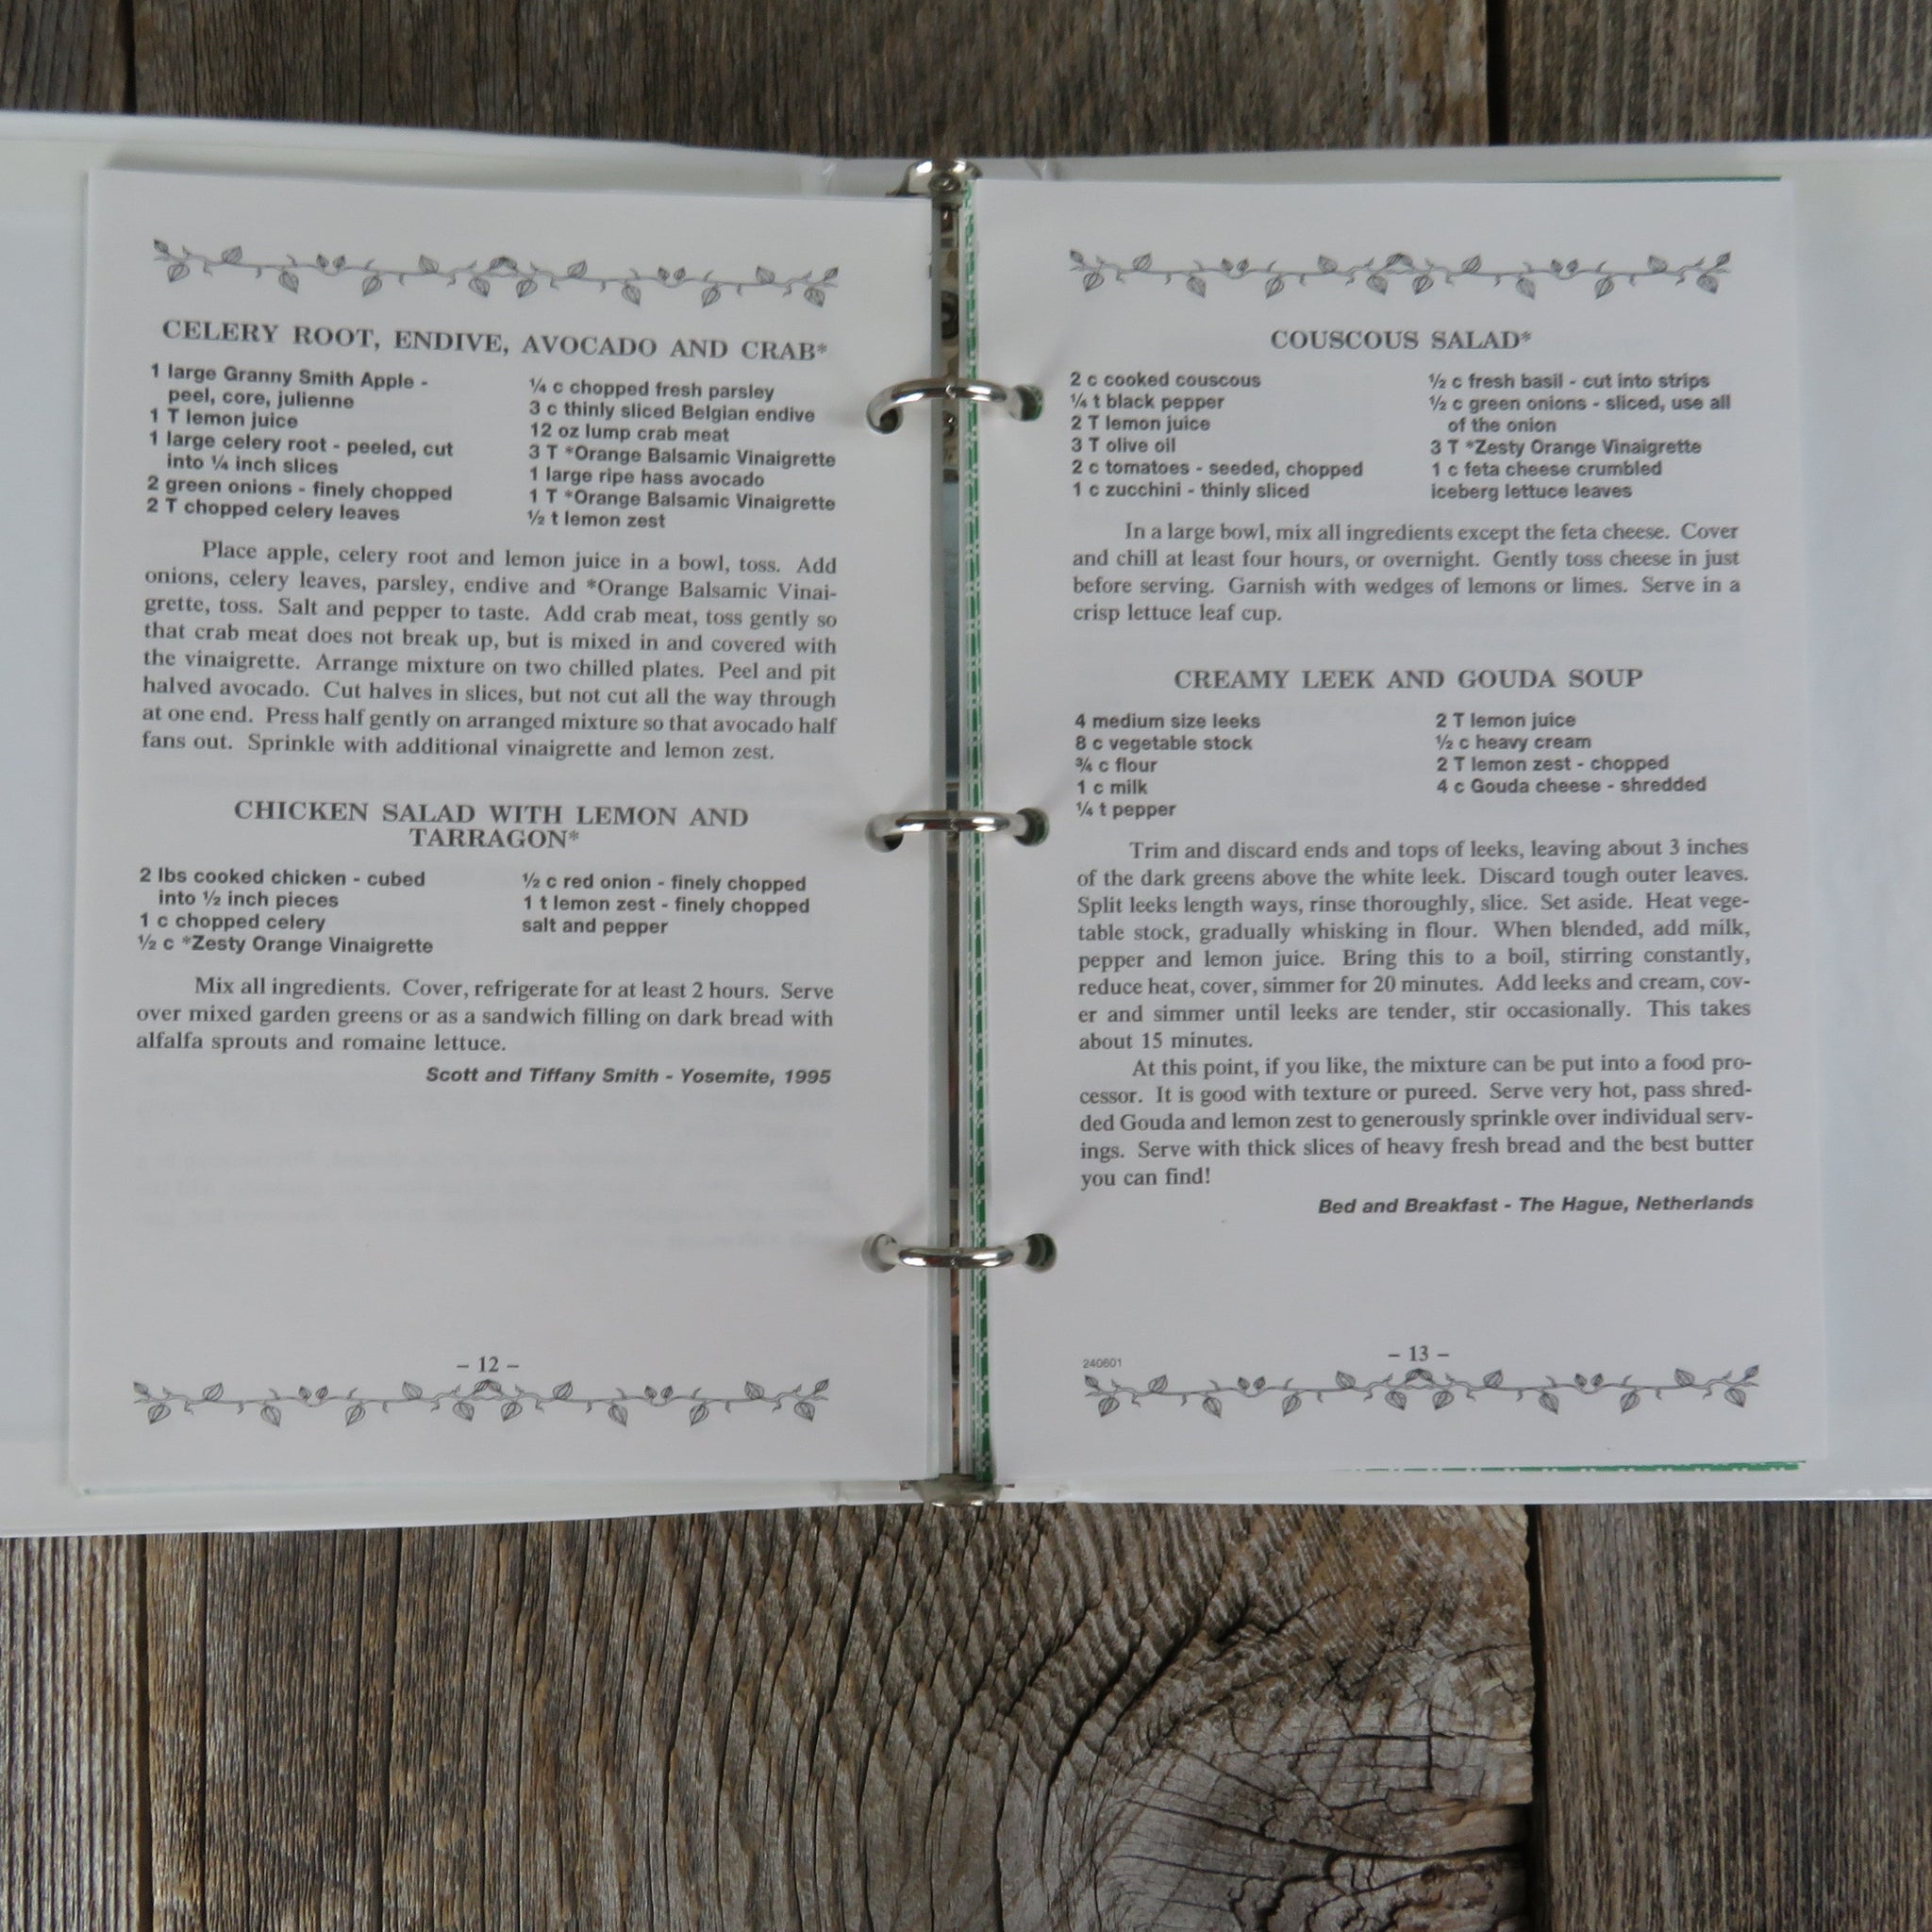 CELERY ROOT, ENDIVE, AVOCADO AND CRAB*
1 large Granny Smith Apple -
peel, core, julienne
1 T lemon juice
1 large celery root - peeled, cut
into ¼ inch slices
2 green onions - finely chopped
2 T chopped celery leaves
¼ c chopped fresh parsley
3 c thinly sliced Belgian endive
12 oz lump crab meat
3 T *Orange Balsamic Vinaigrette
1 large ripe hass avocado
1 T *Orange Balsamic Vinaigrette
½ t lemon zest
Place apple, celery root and lemon juice in a bowl, toss. Add
onions, celery leaves, parsley, endive and *Orange Balsamic Vinai-
grette, toss. Salt and pepper to taste. Add crab meat, toss gently so
that crab meat does not break up, but is mixed in and covered with
the vinaigrette. Arrange mixture on two chilled plates. Peel and pit
halved avocado. Cut halves in slices, but not cut all the way through
at one end. Press half gently on arranged mixture so that avocado half
fans out. Sprinkle with additional vinaigrette and lemon zest.
CHICKEN SALAD WITH LEMON AND
TARRAGON*
2 lbs cooked chicken - cubed
into ½ inch pieces
1 c chopped celery
½ c *Zesty Orange Vinaigrette
½ c red onion - finely chopped
1 t lemon zest - finely chopped
salt and pepper
Mix all ingredients. Cover, refrigerate for at least 2 hours. Serve
over mixed garden greens or as a sandwich filling on dark bread with
alfalfa sprouts and romaine lettuce.
Scott and Tiffany Smith - Yosemite, 1995
- 12 -
COUSCOUS SALAD*
2 c cooked couscous
¼ t black pepper
2 T lemon juice
3 T olive oil
2 c tomatoes - seeded, chopped
1 c zucchini - thinly sliced
½ c fresh basil - cut into strips
½ c green onions - sliced, use all
of the onion
3 T *Zesty Orange Vinaigrette
1 c feta cheese crumbled
iceberg lettuce leaves
In a large bowl, mix all ingredients except the feta cheese. Cover
and chill at least four hours, or overnight. Gently toss cheese in just
before serving. Garnish with wedges of lemons or limes. Serve in a
crisp lettuce leaf cup.
CREAMY LEEK AND GOUDA SOUP
4 medium size leeks
8 c vegetable stock
¾ c flour
1 c milk
¼ t pepper
2 T lemon juice
½ c heavy cream
2 T lemon zest - chopped
4 c Gouda cheese - shredded
Trim and discard ends and tops of leeks, leaving about 3 inches
of the dark greens above the white leek. Discard tough outer leaves.
Split leeks length ways, rinse thoroughly, slice. Set aside. Heat vege-
table stock, gradually whisking in flour. When blended, add milk,
pepper and lemon juice. Bring this to a boil, stirring constantly,
reduce heat, cover, simmer for 20 minutes. Add leeks and cream, cov-
er and simmer until leeks are tender, stir occasionally. This takes
about 15 minutes.
At this point, if you like, the mixture can be put into a food pro-
cessor. It is good with texture or pureed. Serve very hot, pass shred-
ded Gouda and lemon zest to generously sprinkle over individual serv-
ings. Serve with thick slices of heavy fresh bread and the best butter
you can find!
Bed and Breakfast - The Hague, Netherlands
240601
- 13 -